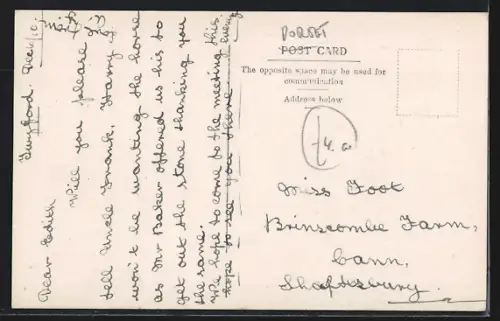 DORSET
POST CARD
The opposite space may be used for
communication
Address below
Miss Foot
Brinscombe Farm,
Cann,
Shaftesbury.
Dear Edith
Will you please
tell Uncle Frank, Harry &
won't be wanting the horse
as Mr Baker offered us his to
get out the stone thanking you
the same.
We hope to come to the meeting this
hope to see you there